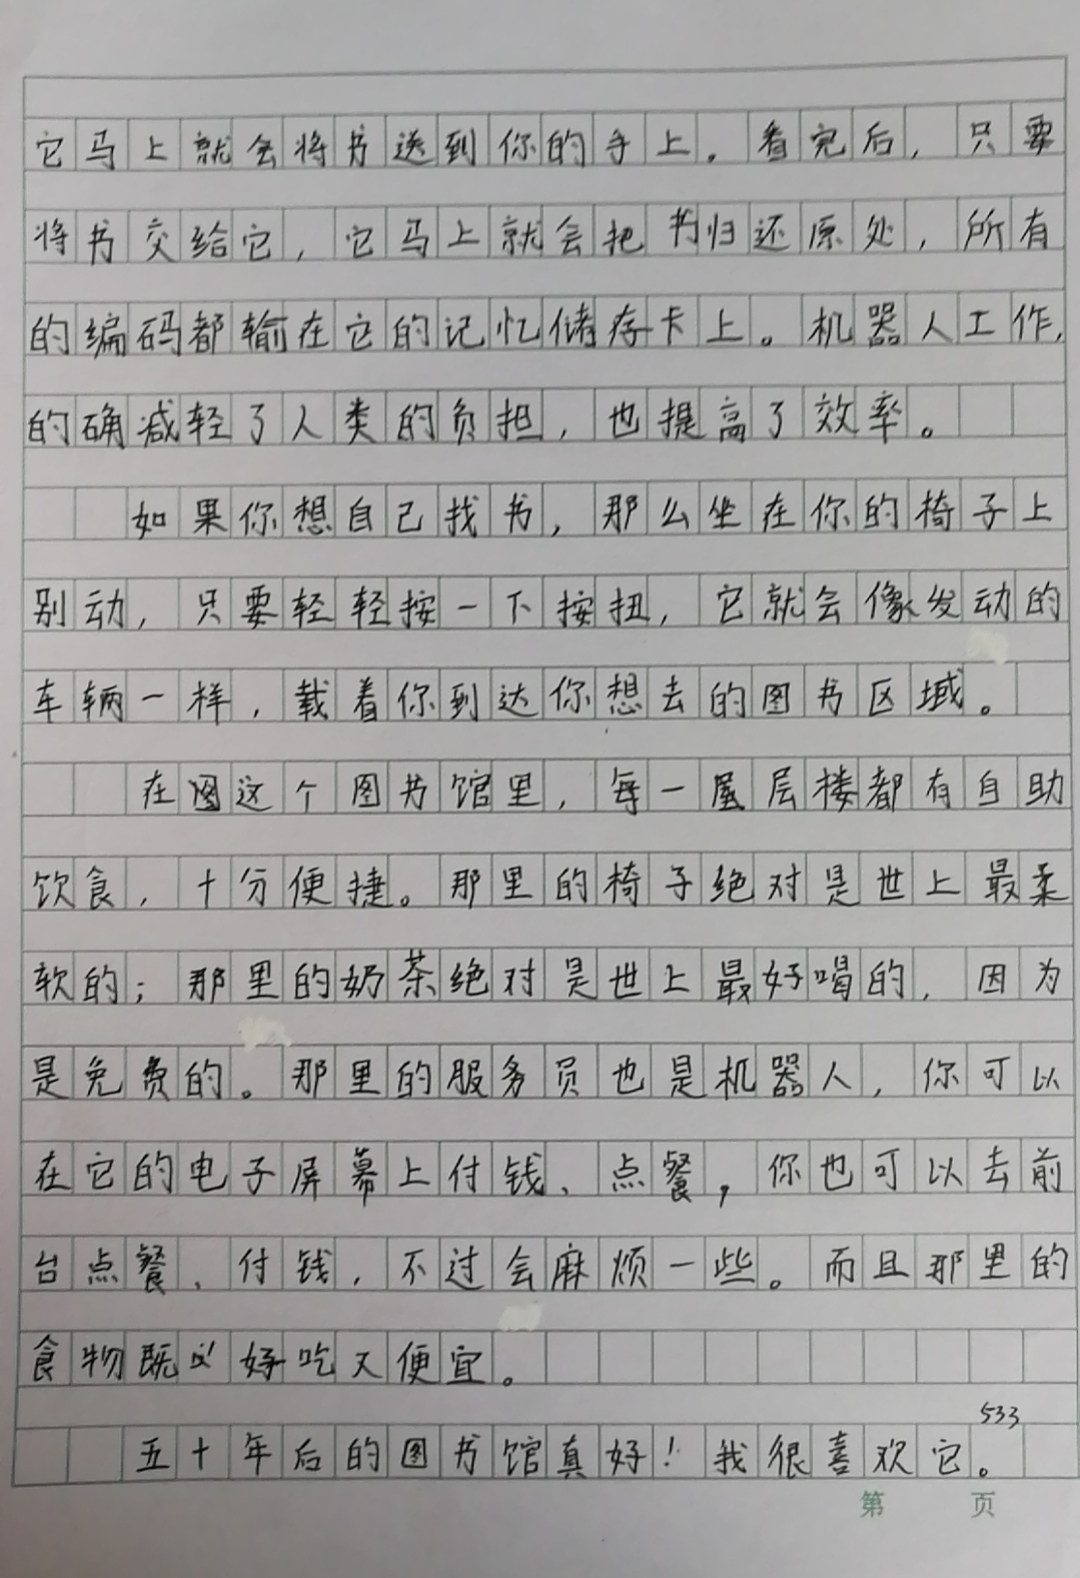 它马上就会将书送到你的手上。看完后，只要
将书交给它，它马上就会把书归还原处，所有
的编码都输在它的记忆储存卡上。机器人工作，
的确减轻了人类的负担，也提高了效率。
如果你想自己找书，那么坐在你的椅子上
别动，只要轻轻按一下按扭，它就会像发动的
车辆一样，载着你到达你想去的图书区域。
在图这个图书馆里，每一屋层楼都有自助
饮食，十分便捷。那里的椅子绝对是世上最柔
软的；那里的奶茶绝对是世上最好喝的，因为
是免费的。那里的服务员也是机器人，你可以
在它的电子屏幕上付钱、点餐，你也可以去前
台点餐、付钱，不过会麻烦一些。而且那里的
食物既好吃又便宜。
533
五十年后的图书馆真好！我很喜欢它。
第 页